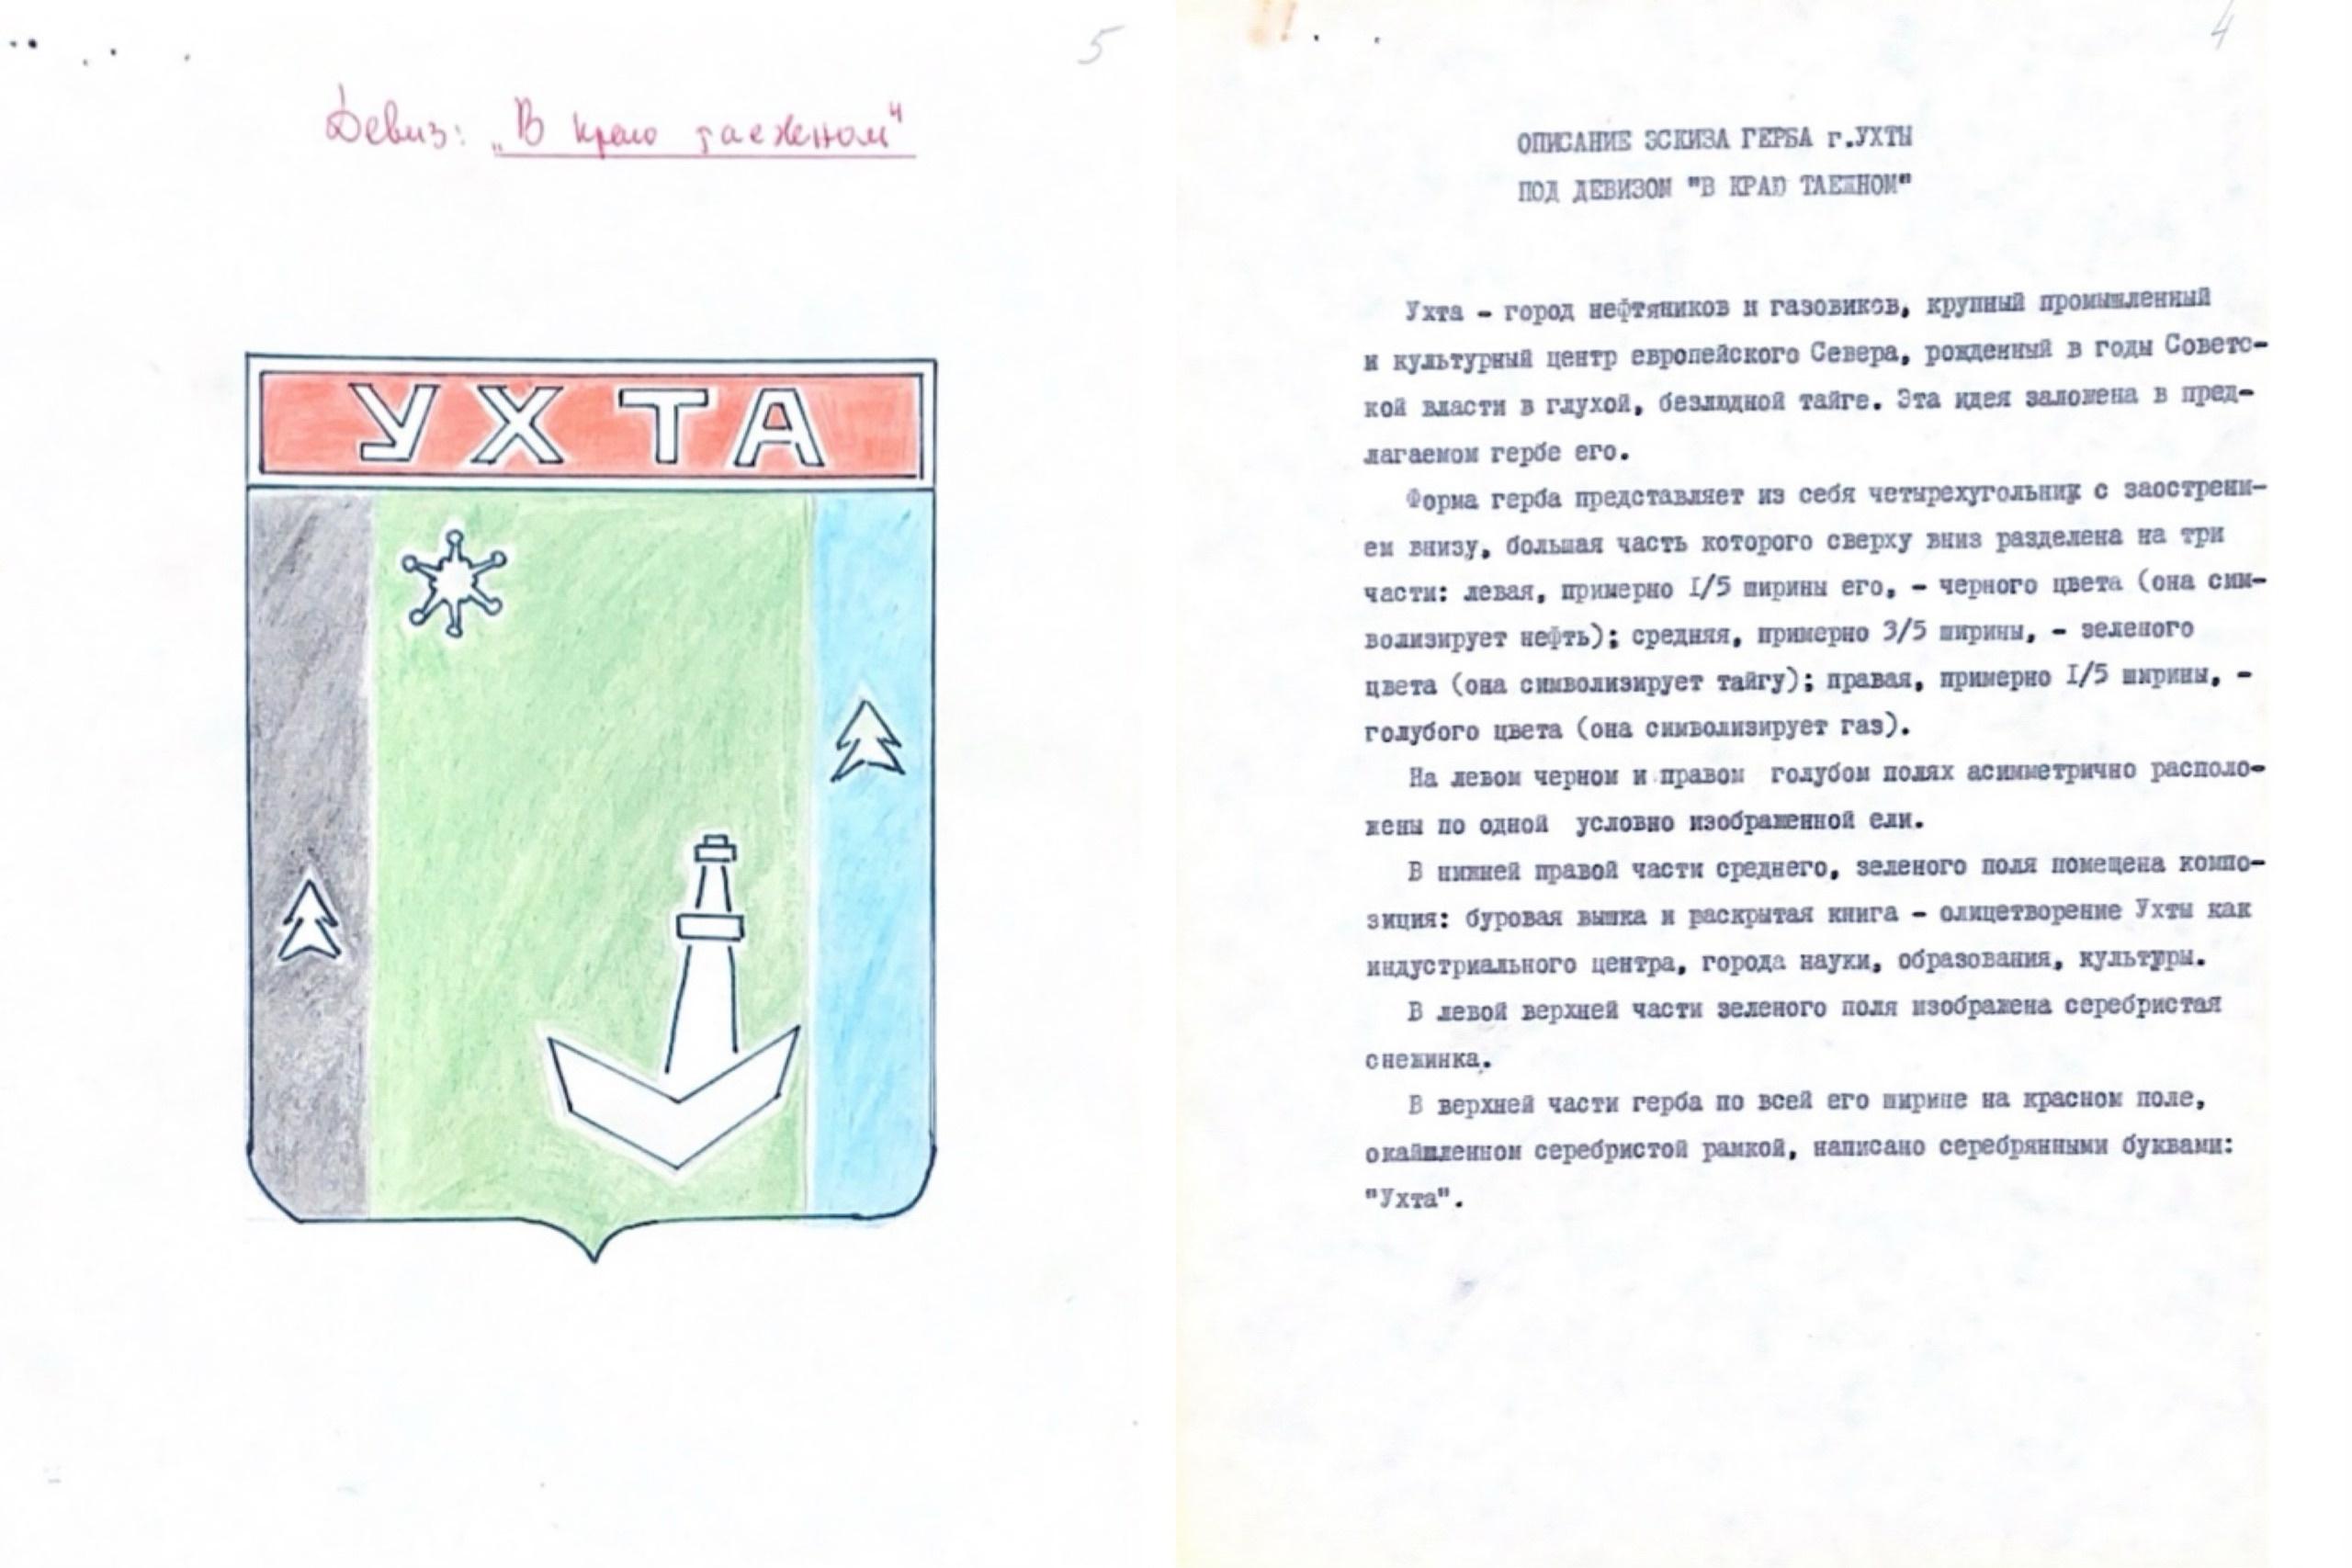 5
Девиз: „В краю таежном"
УХТА
4
ОПИСАНИЕ ЭСКИЗА ГЕРБА г.УХТЫ
ПОД ДЕВИЗОМ "В КРАЮ ТАЕЖНОМ"
Ухта - город нефтяников и газовиков, крупный промышленный
и культурный центр европейского Севера, рожденный в годы Советс-
кой власти в глухой, безлюдной тайге. Эта идея заложена в пред-
лагаемом гербе его.
Форма герба представляет из себя четырехугольник с заострени-
ем внизу, большая часть которого сверху вниз разделена на три
части: левая, примерно I/5 ширины его, - черного цвета (она сим-
волизирует нефть); средняя, примерно 3/5 ширины, - зеленого
цвета (она символизирует тайгу); правая, примерно I/5 ширины, -
голубого цвета (она символизирует газ).
На левом черном и правом голубом полях асимметрично располо-
жены по одной условно изображенной ели.
В нижней правой части среднего, зеленого поля помещена компо-
зиция: буровая вышка и раскрытая книга - олицетворение Ухты как
индустриального центра, города науки, образования, культуры.
В левой верхней части зеленого поля изображена серебристая
снежинка.
В верхней части герба по всей его ширине на красном поле,
окаймленном серебристой рамкой, написано серебрянными буквами:
"Ухта".